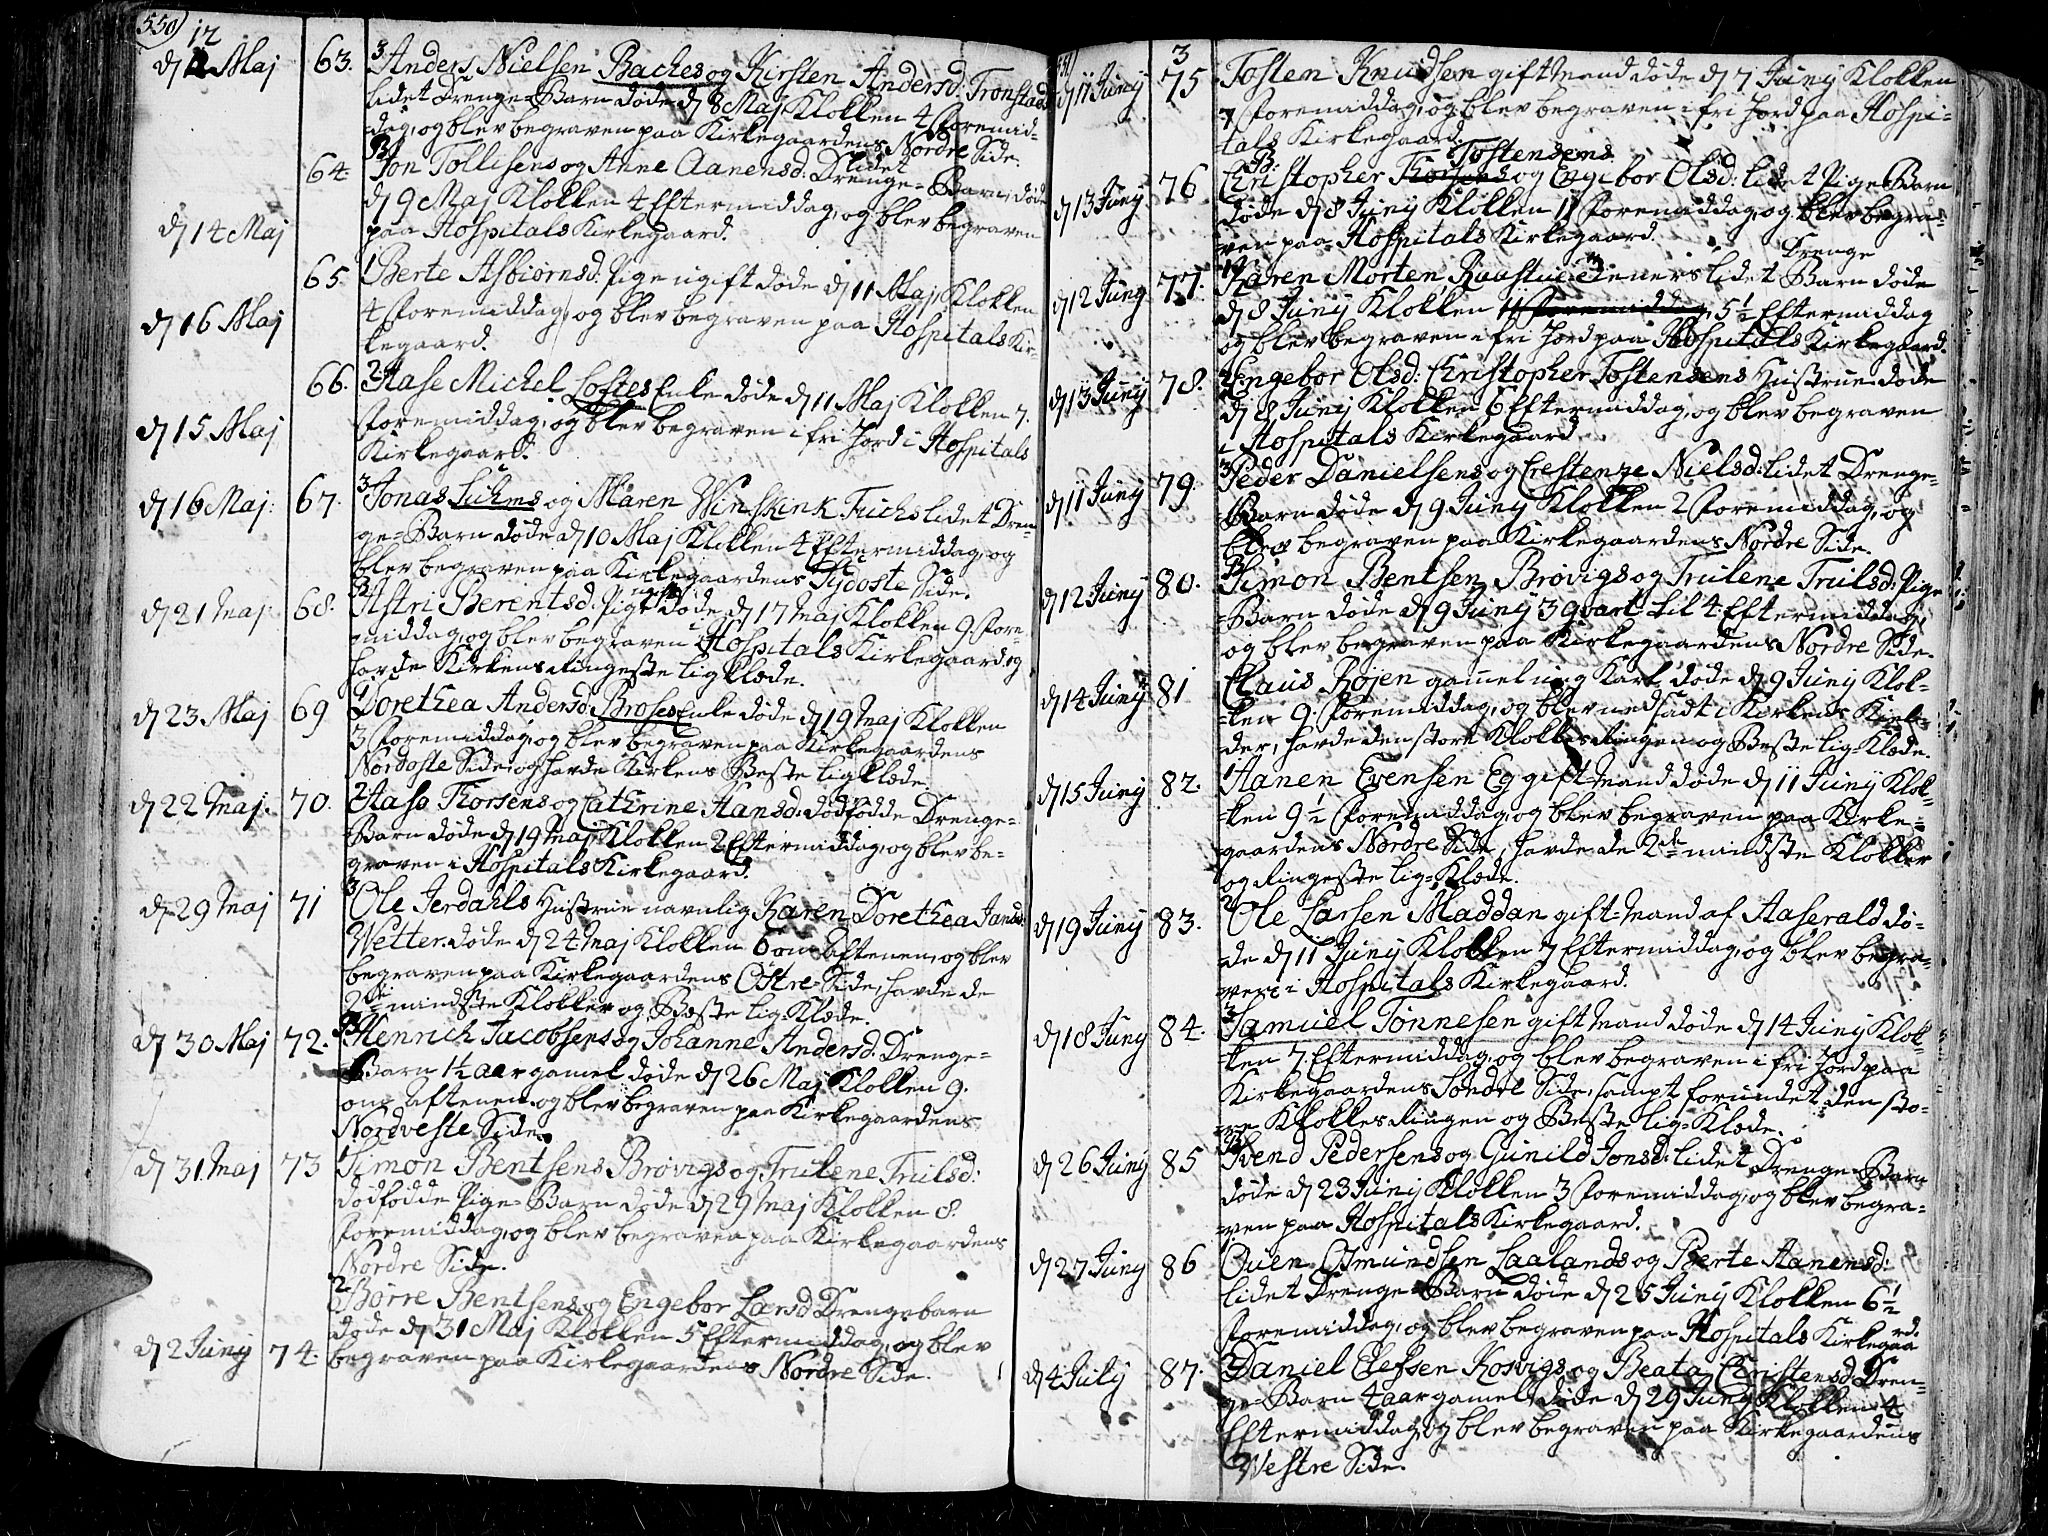 550
12
d 12 Maj 63. 3 Anders Nielsen Baches og Kirsten Andersd: Tronstads
lidet Drenge=Barn døde d 8 Maj Klokken 4 Formid-
=dag, og blev begraven paa Kirkegaardens Nordre Side.
64 Jon Tollisens og Anne Aanensd: lidet Drenge=Barn, døde
d 14 Maj d 9 Maj Klokken 4 Eftermiddag, og blev begraven
paa Hospitals Kirkegaard.
65. 1 Berte Asbiørnsd: Pige ugift døde d 11 Maj, Klokken
d 16 Maj 4 Foremiddag, og blev begraven paa Hospitals Kir-
kegaard.
66. 2 Aase Michel Lostes Enke døde d 11 Maj Klokken 7.
d 15 Maj Foremiddag, og blev begraven i fri Jord i Hospitals
Kirkegaard.
d 16 Maj: 67. 3 Jonas Lühms og Maren Winskink Fuchs lidet Dren-
ge=Barn døde d 10 Maj Klokken 4 Eftermiddag, og
blev begraven paa Kirkegaardens Sydoste Side.
d 21 Maj: 68. Astri Berentsd: Pige ugift døde d 17 Maj Klokken 9 Fore-
=middag, og blev begraven i Hospitals Kirkegaard og
havde Kirkens Ringeste lig klæde.
d 23 Maj 69 1 Dorethea Andersd Broses Enke døde d 19 Maj Klokken
3 Foremiddag, og blev begraven paa Kirkegaardens
Nordoste Side, og havde Kirkens Beste lig klæde
d 22 Maj: 70. 2 Aasa Thorsens og Cathrine Hansd: dødfødde Drenge=
Barn døde d 19 Maj Klokken 2 Eftermiddag, og blev be-
graven i Hospitals Kirkegaard.
d 29 Maj 71 3 Ole Jerdahls Hustrue navnlig Karen Dorethea Jansd:
Wetter døde d 24 Maj Klokken 6 om Aftenen, og blev
begraven paa Kirkegaardens Østre Side, havde de
2de mindste Klokker og Beste lig Klæde.
d 30 Maj 72. Henrich Jacobsens og Johanne Andersd: Drenge=
Barn 1½ aar gamel døde d 26 Maj Klokken 9.
om Aftenen og blev begraven paa Kirkegaardens
Nordveste Side.
d 31 Maj 73 1 Simon Bentsens Brøvigs og Trulene Trulsd:
dødfødde Pige=Barn døde d 29 Maj Klokken 8.
Foremiddag, og blev begraven paa Kirkegaardens
Nordre Side.
2 Børre Bentsens og Engebor Larsd Drengebarn
døde d 31 Maj Klokken 5 Eftermiddag, og blev
d 2 Junij 74. begraven paa Kirkegaardens Nordre Side.
551
d 11 Junij 75 3 Tosten Knudsen gift Mand døde d 7 Junij Klokken
7 Foremiddag, og blev begraven i fri Jord paa Hospi-
tals Kirkegaard.
d 13 Junij 76 Christopher Tostensens og Engebor Olsd: lidet Pige Barn
døde d 8 Junij Klokken 11 Foremiddag, og blev begra-
=ven paa Hospitals Kirkegaard.
d 12 Junij 77. 1 Karen Morten Ruustueteners lidet Drenge Barn døde
d 8 Junij Klokken 11 Foremiddag 5½ Eftermiddag
og blev begraven i fri Jord paa Hospitals Kirkegaard.
d 13 Junij 78. 2 Engebor Olsd: Christopher Tostensens Hustrue døde
d 8 Junij Klokken 6 Eftermiddag, og blev begraven
i Hospitals Kirkegaard
d 11 Junij 79. 3 Peder Danielsens og Crestenze Nielsd: lidet Drenge=
Barn døde d 9 Junij Klokken 2 Foremiddag, og
blev begraven paa Kirkegaardens Nordre Side.
d 12 Junij 80. Simon Bentsen Brøvigs og Trulene Trulsd: Pige
=Barn døde d 9 Junij 3 qvart til 4 Eftermiddag,
og blev begraven paa Kirkegaardens Nordre Side.
d 14 Junij 81 1 Claus Røjen gammel ung Karl døde d 9 Junij Klok=
=ken 9. Foremiddag, og blev nedsadt i Kirkens Kiel=
der, havde den store Klokkes Ringen og Beste lig=Klæde.
d 15 Junij 82. 1 Aanen Evensen Eg gift Mand døde d 11 Junij Klok=
=ken 9½ Foremiddag, og blev begraven paa Kirke=
=gaardens Nordre Side, havde de 2de mindste Klokker
og Ringeste lig=Klæde.
d 19 Junij 83. 2 Ole Larsen Maddan gift=Mand af Aaserald dø=
de d 11 Junij Klokken 7 Eftermiddag, og blev begra=
=ven i Hospitals Kirkegaard.
d 18 Juny 84. 3 Samuel Tønnesen gift Mand døde d 14 Junij Klok=
=ken 7. Eftermiddag, og blev begraven i fri Jord paa
Kirkegaardens Søndre Side, sampt forundet den sto=
=re Klokkes Ringen og Beste lig=Klæde.
d 26 Junij 85 Svend Pedersens og Gunild Jonsd: lidet Drenge=Barn
døde d 23 Junij Klokken 3 Foremiddag, og blev begra=
=ven paa Hospitals Kirkegaard.
d 27 Junij 86 1 Ouen Osmundsen Laalands og Berte Aanensd:
lidet Drenge=Barn døde d 25 Junij Klokken 6½
Foremiddag, og blev begraven paa Hospitals Kirkegaard.
d 4 July 87. 2 Daniel Elefsen Kosvigs og Beata Christensd: Dren=
ge=Barn 4 aar gamel, døde d 29 Junij Klokken 4
Eftermiddag, og blev begraven paa Kirkegaardens
Westre Side.